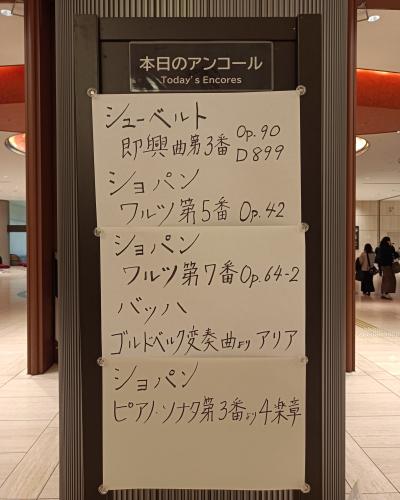 本日のアンコール
Today's Encores
シューベルト
即興曲第3番 Op.90
D899
ショパン
ワルツ第5番 Op.42
ショパン
ワルツ第7番 Op.64-2
バッハ
ゴルドベルク変奏曲より アリア
ショパン
ピアノ・ソナタ第3番より4楽章